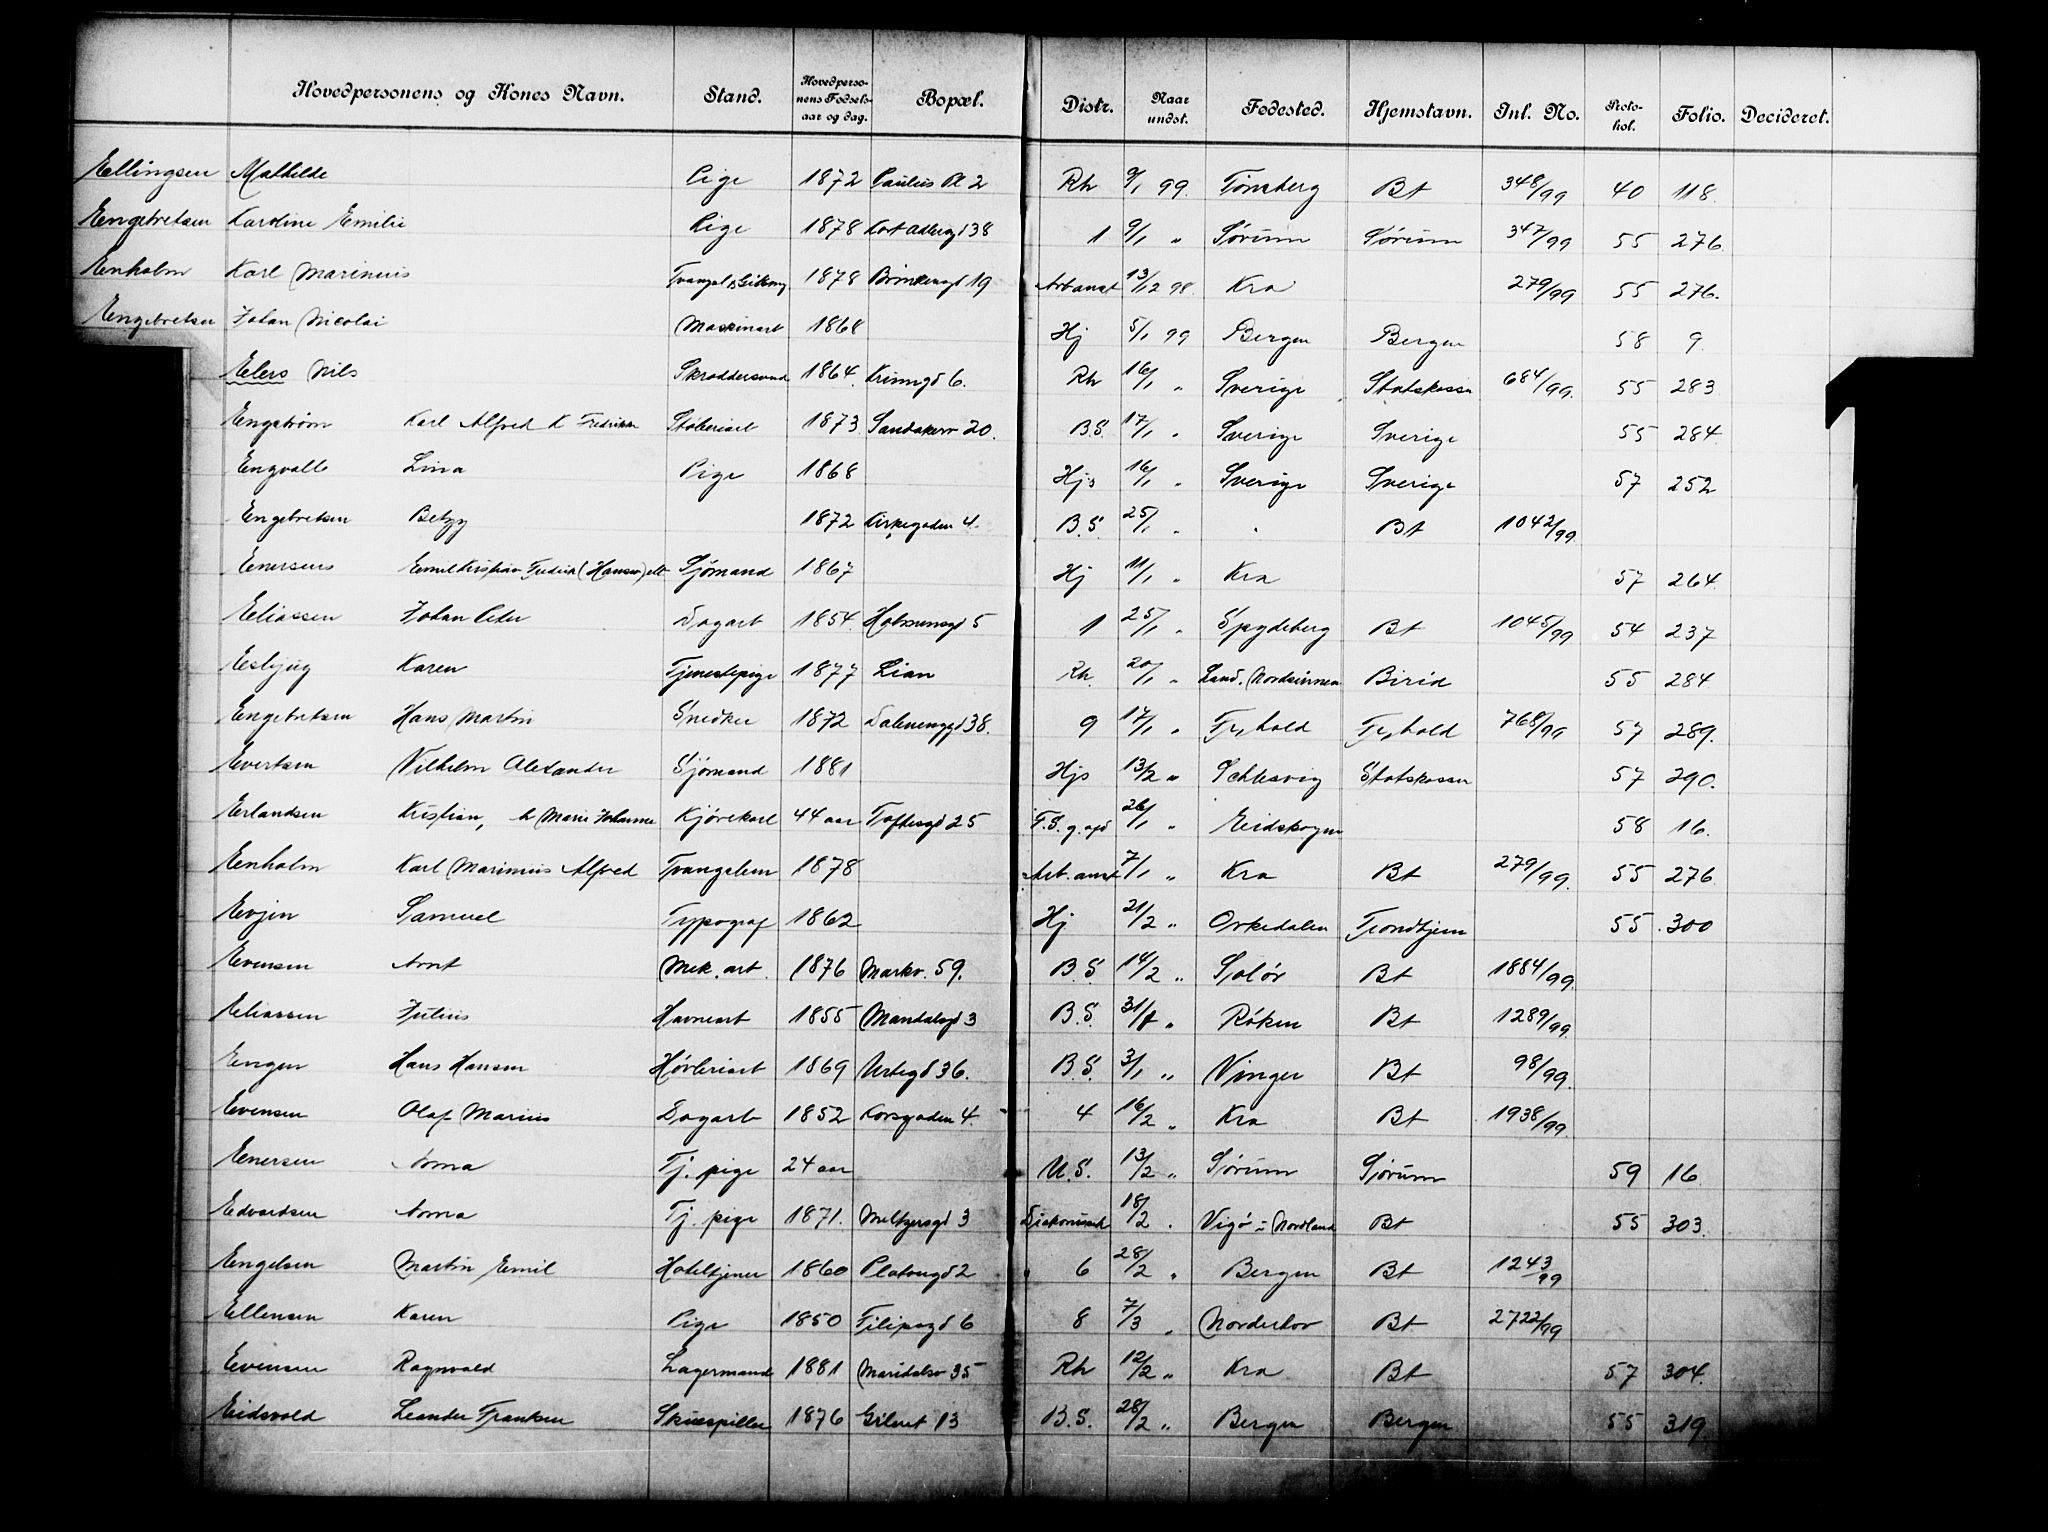 Hovedpersonens og Kones Navn. Stand. Hovedpersonens Fødselsaar og dag. Bopæl. Distr. Naar undst. Fødested. Hjemstavn. Inl. No. Protokol. Folio. Decideret.
Ellingsen Mathilde Pige 1872 Paulus Pl 2 Rh 9/1 99. Tønsberg Bt 348/99 40 118.
Engebretsen Karoline Emilie Pige 1878 38 1 9/1 " Sørum Sørum 347/99 55 276.
Enholm Karl Marinius 1878 19 Arbanst 13/12 98. Kra 279/99 55 276.
Engebretsen Johan Nicolai Maskinarb 1868 Hj 5/1 99 Bergen Bergen 58 9.
Elers Nils Skræddersvend 1864. 6. Rh 16/1 " Sverige Statskassen 684/99. 55 283
Engstrøm Karl Alfred K Fredrikke Støberiarb 1873. Sandakerv 20. B.S. 17/1 " Sverige Sverige 55 284.
Engvall Lina Pige 1868 Hjs 16/1 " Sverige Sverige 57 252
Engebretsen Betzy 1872 Kirkegaden 4. B.S. 25/1 " " Bt 1042/99.
Enersen Emil Kristian Fredrik (Hansen) Sjømand 1867 Hj 11/1 " Kra 57 264.
Eliassen Johan Peder Dagarb 1854. 5 1 25/1 " Spydeberg Bt 1045/99 54 237
Esbjug Karen Tjenestepige 1877 Lian Rh. 20/1 " Land. Nordsinnen Birid 55 284.
Engebretsen Hans Martin Snedker 1872 Dælenenggd 38. 9 17/1 " Tryhold Tryhold 768/99 57 289.
Evertsen Vilhelm Alexander Sjømand 1881 Hjs 13/2 " Schlesvig Statskassen 57 290.
Erlandsen Kristian, h Marie Johanne Kjørekarl 44 aar Toftesgd 25 26/1 " Eidskogen 58 16.
Enholm Karl Marinius Alfred Tvangslem 1878 Arb. anst 7/1 " Kra Bt 279/99. 55 276.
Evjen Samuel Typograf 1862 Hj 21/2 " Orkedalen Trondhjem 55 300
Evensen Arnt Mek. arb. 1876 Markv. 59. B.S. 14/2 " Solør Bt 1884/99.
Eliassen Julius Havnearb 1855 Mandalsgd 3 B.S. 31/1 " Røken Bt 1289/99.
Engen Hans Hansen Høvleriarb 1869 Urtegd 36. B.S. 3/1 " Vinger Bt 98/99.
Evensen Olaf Marius Dagarb 1852 Korsgaden 4. 4 16/2 " Kra Bt 1938/99.
Enersen Anna Tj. pige 24 aar U.S. 13/2 " Sørum Sørum 59 16.
Edvardsen Anna Tj. pige 1871. Meltzersgd 3 18/2 " Vigø i Nordland Bt 55 303.
Engelsen Martin Emil Hoteltjener 1860 Platousgd 2 6 28/2 " Bergen Bt 1243/99
Ellensen Karen Pige 1850 Filipsgd 6 8 7/3 " Norderhov Bt 2722/99
Evensen Ragnvald Lagermand 1881 Maridalsv 35 Rh 12/2 " Kra Bt 57 304.
Eidsvold Leander Fransen Skuespiller 1876 13 B.S. 28/2 " Bergen Bergen 55 319.